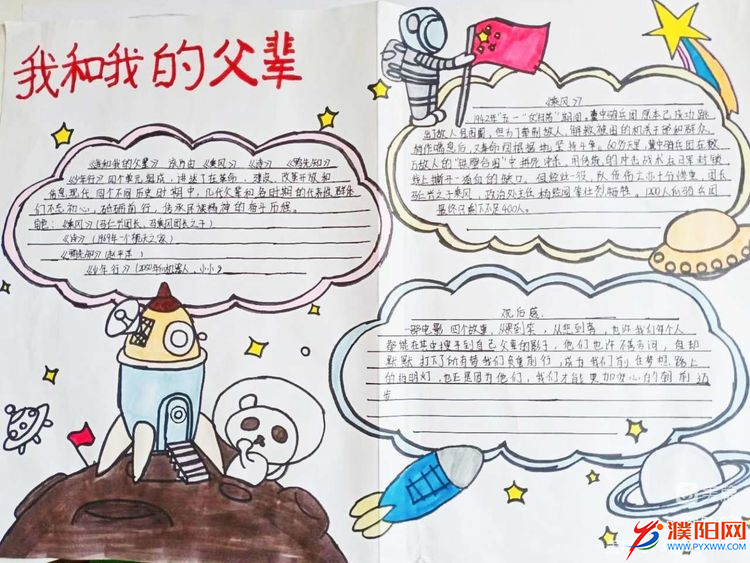 我和我的父辈
《我和我的父辈》 该片由 《乘风》 《诗》 《鸭先知》
《少年行》四个单元组成，讲述了在革命、建设、改革开放和
时代 四个不同历史时期中，几代父辈和各时期的代表性群体
们不忘初心，砥砺前行，传承民族精神的奋斗历程。
角色：《乘风》（马仁兴团长、马乘风团长之子）
《诗》（1969年一个航天之家）
《鸭先知》（赵平洋）
《少年行》（2050年的机器人、小小）
《乘风》
1942年"五一"大扫荡"期间，冀中骑兵团原本已成功跳
出敌人包围圈，但为了牵制敌人，拯救被困的机关干部和群众，
根据地坚持斗争。60多万里，冀中骑兵团在数
万敌人的"铁壁合围"中拼死冲杀，用传统的冲击战术在日军封锁
线上撕开一道道的缺口。但经此一役，队伍伤亡亦十分惨重，团长
马仁兴之子乘风，政治处主任杨经国等壮烈牺牲。1200人的骑兵团
最终只剩下不足400人。
观后感
一部电影 四个故事，从哭到笑，从悲到喜，也许我们每个人
都能在其中搜寻到自己父辈的影子，他们也许不善言词，但却
默默打下了所有替我们负重前行，成为我们前在梦想 路上
的指明灯，也正是因为他们，我们才能更加安心的向前迈
步
濮阳网
WWW.PYXWW.COM